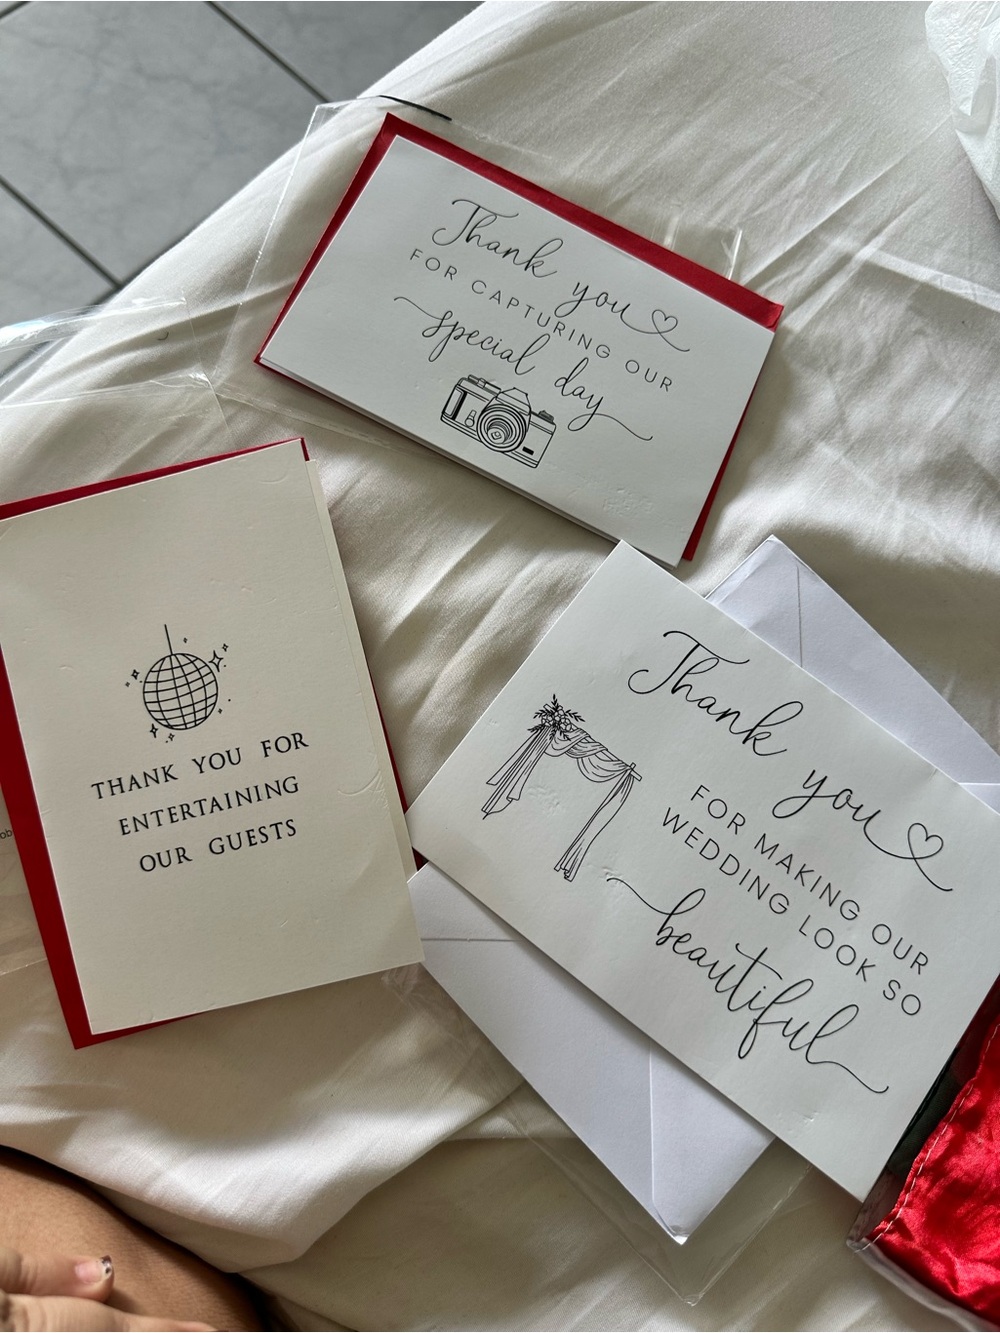 Thank you
FOR CAPTURING OUR
special day
THANK YOU FOR
ENTERTAINING
OUR GUESTS
Thank you
FOR MAKING OUR
WEDDING LOOK SO
beautiful